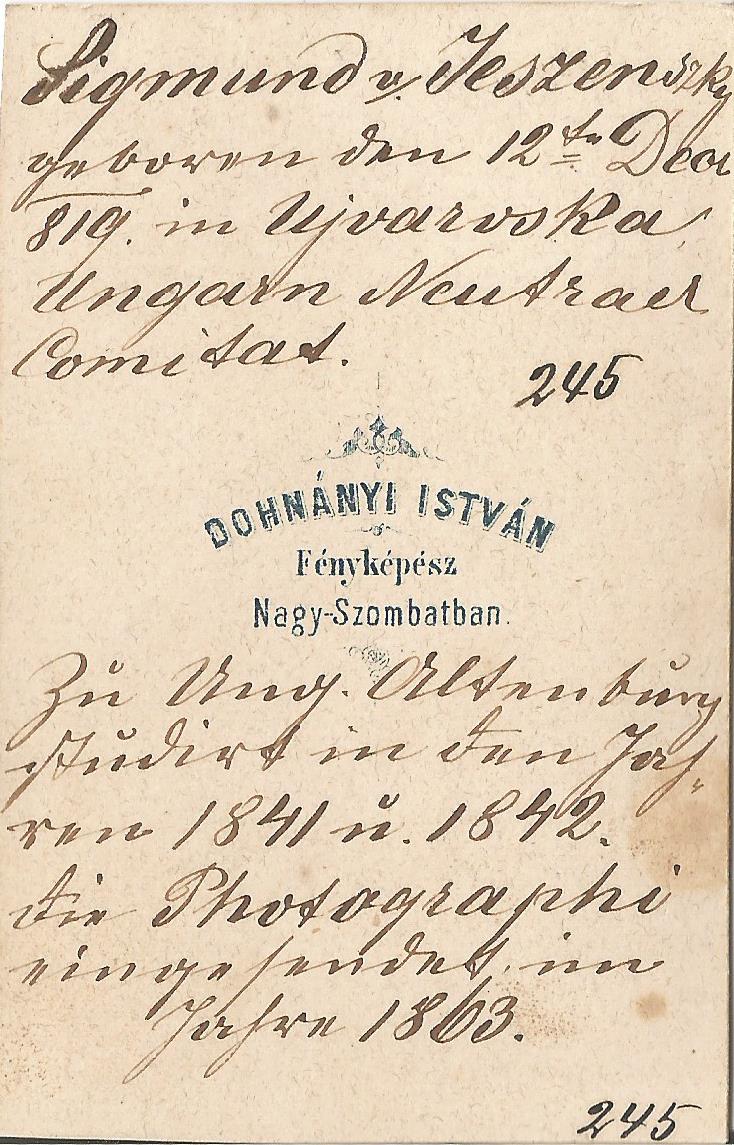 Sigmund v. Jeszenszky
geboren den 12tn Decr
819. in Ujvarvska
Ungarn Neutraer
Comitat.
245
DOHNÁNYI ISTVÁN
Fényképész
Nagy-Szombatban.
Zu Ung. Altenburg
studirt in den Jah-
ren 1841 u. 1842.
die Photographi
eingesendet im
Jahre 1863.
245